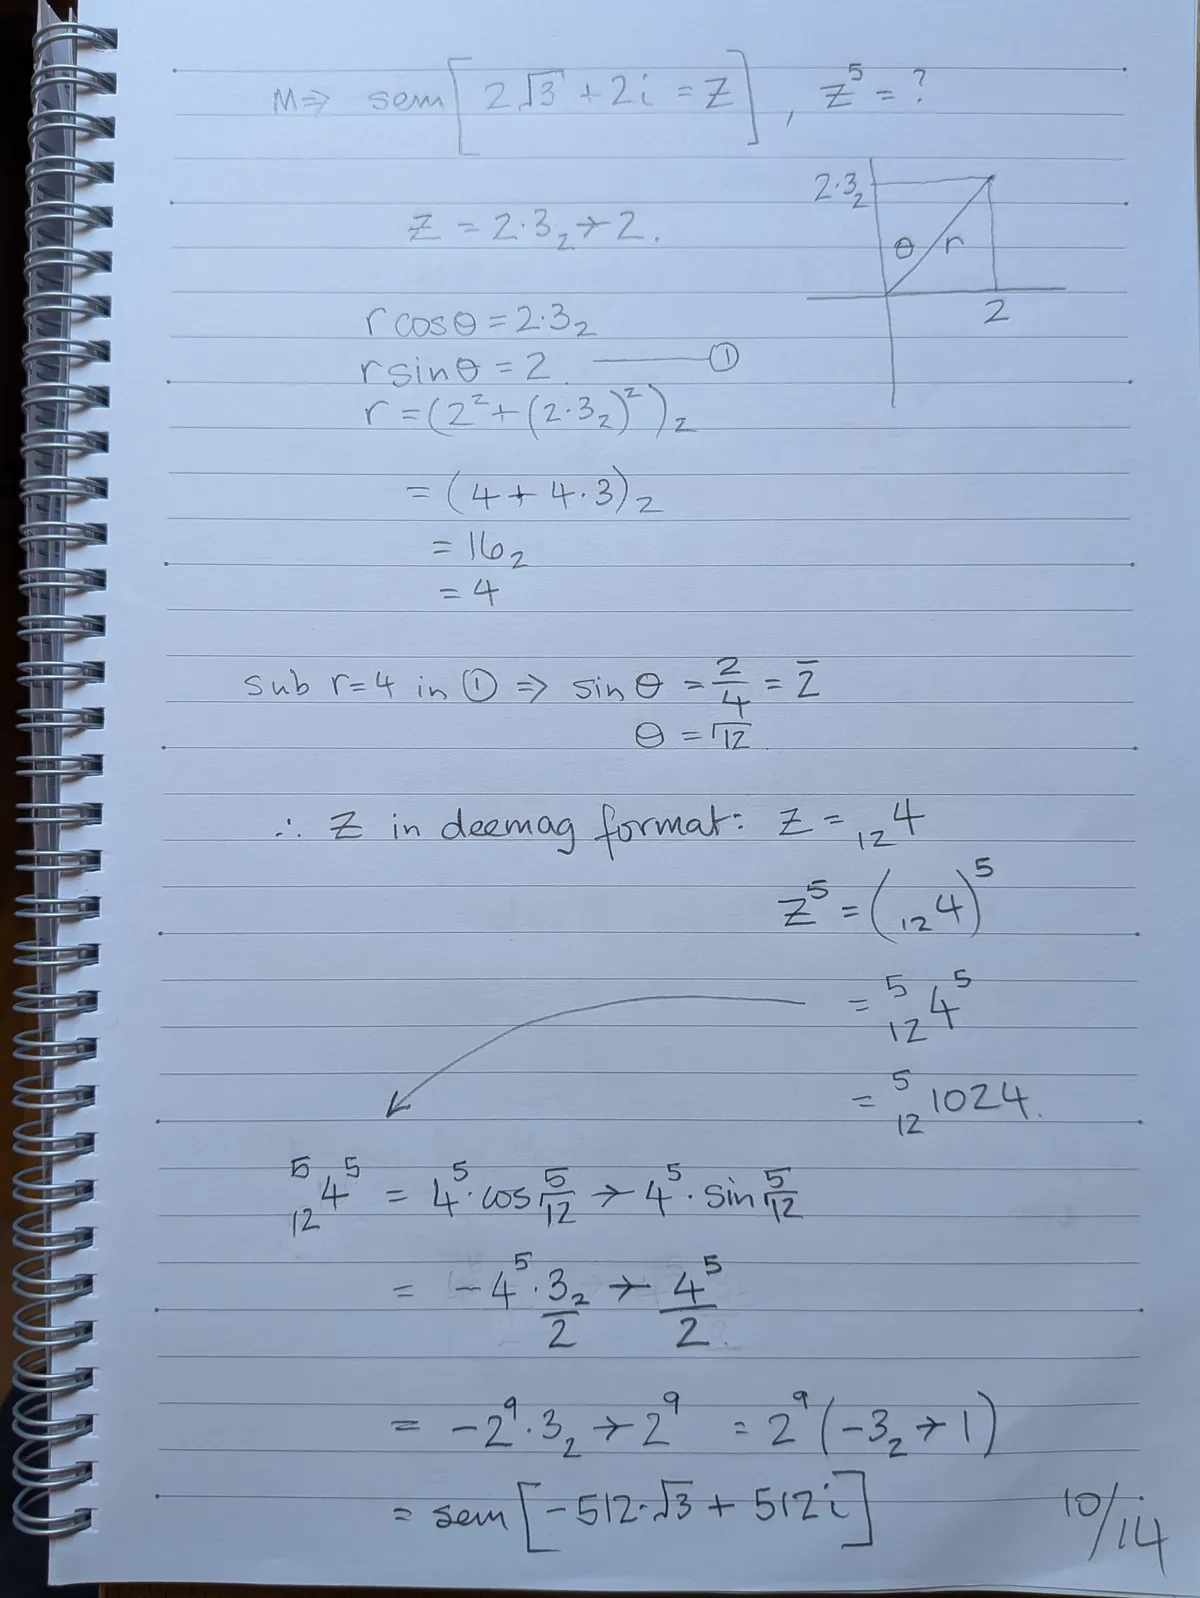 M⇒ sem[2√3 + 2i = Z], z⁵ = ?
Z = 2·3₂ → 2.
2·3₂
θ r
2
r cosθ = 2·3₂
r sinθ = 2 ——— ①
r = (2² + (2·3₂)²)₂
= (4 + 4·3)₂
= 16₂
= 4
sub r=4 in ① ⇒ sin θ = 2/4 = 2̄
θ = Γ/12
∴ Z in deemag format: Z = ₁₂4
Z⁵ = (₁₂4)⁵
= ⁵₁₂4⁵
= ⁵₁₂1024.
⁵₁₂4⁵ = 4⁵·cos 5Γ/12 → 4⁵·sin 5Γ/12
= -4⁵·3₂/2 → 4⁵/2
= -2⁹·3₂ → 2⁹ = 2⁹(-3₂ → 1)
= sem[-512·√3 + 512i]
10/14